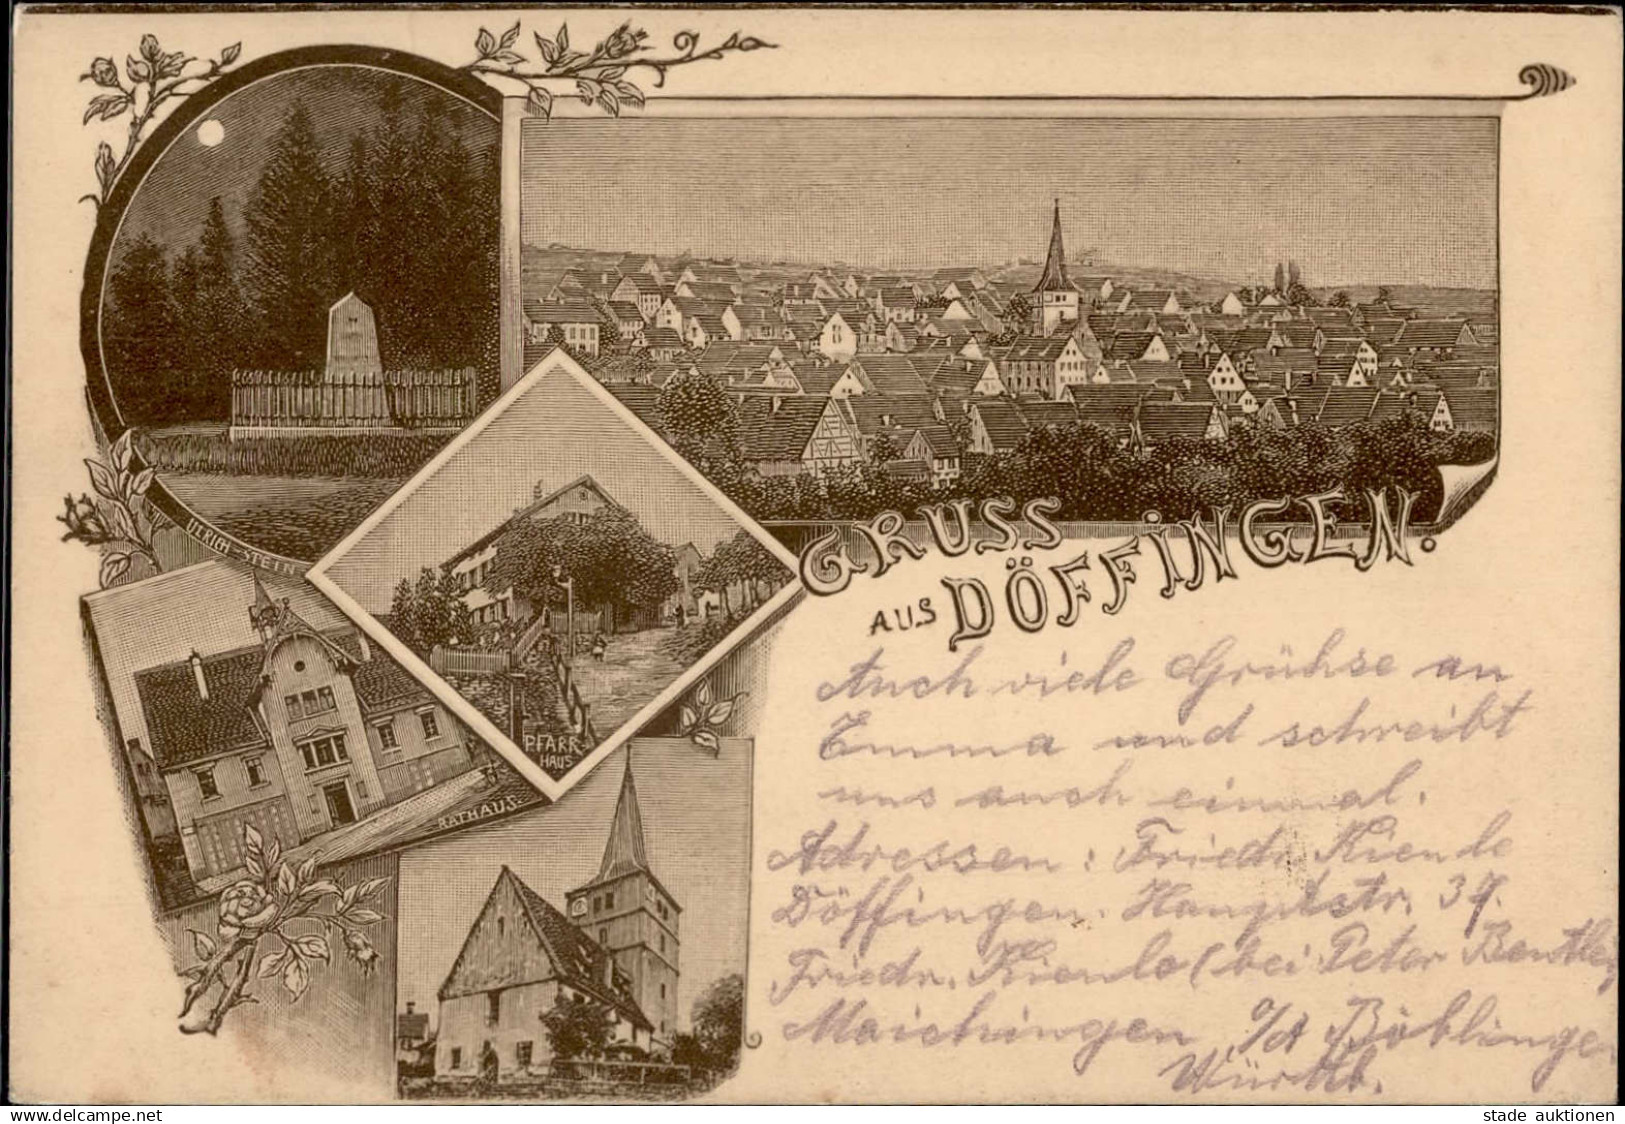 ULRICH-STEIN
GRUSS
AUS DÖFFINGEN.
PFARR-
HAUS
RATHAUS.
Auch viele Grühse an
Emma und schreibt
uns auch einmal.
Adressen: Friedr. Kienle
Döffingen. Hauptstr. 37.
Friedr. Kienle (bei Peter
Maichingen O/A Böblingen
Württb.
www.delcampe.net
stade auktionen